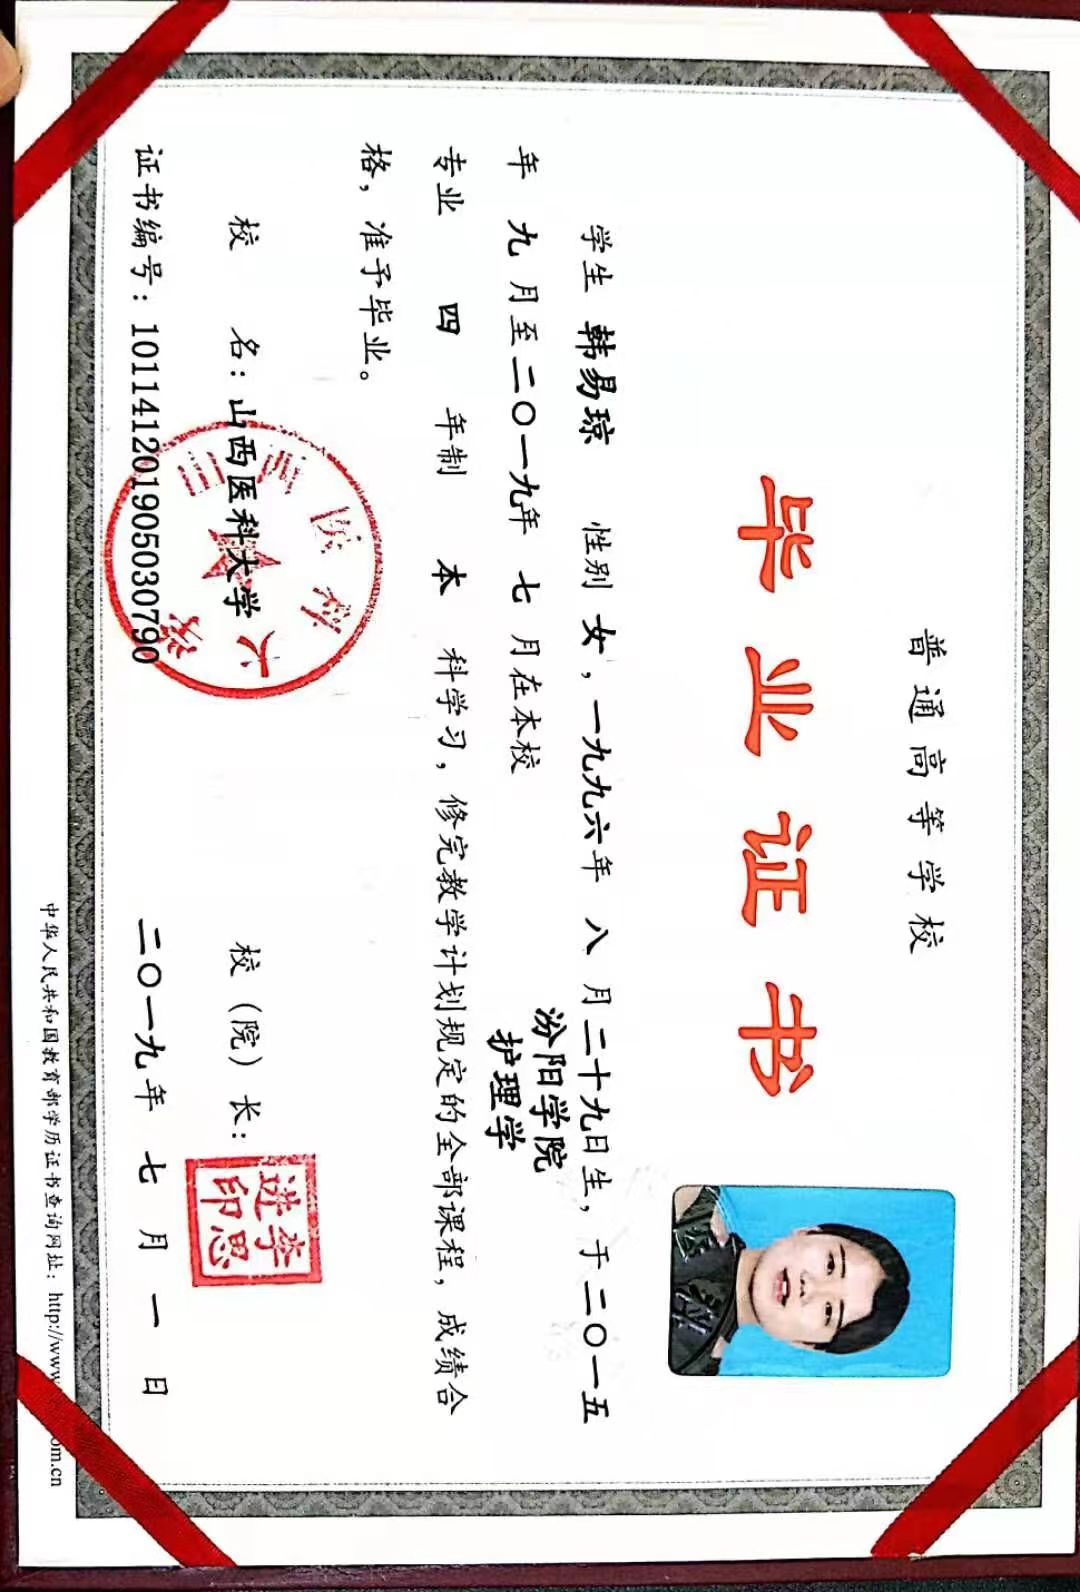 普通高等学校
毕业证书
学生 韩易琼 性别 女，一九九六年 八 月二十九日生，于二〇一五
年 九 月至二〇一九年 七 月在本校 汾阳学院
护理学
专业 四 年制 本 科学习，修完教学计划规定的全部课程，成绩合
格，准予毕业。
校 名：山西医科大学 校（院）长：
李思进印
山西医科大学
证书编号：101141201905030790 二〇一九年 七 月 一 日
中华人民共和国教育部学历证书查询网址：http://www.
om.cn